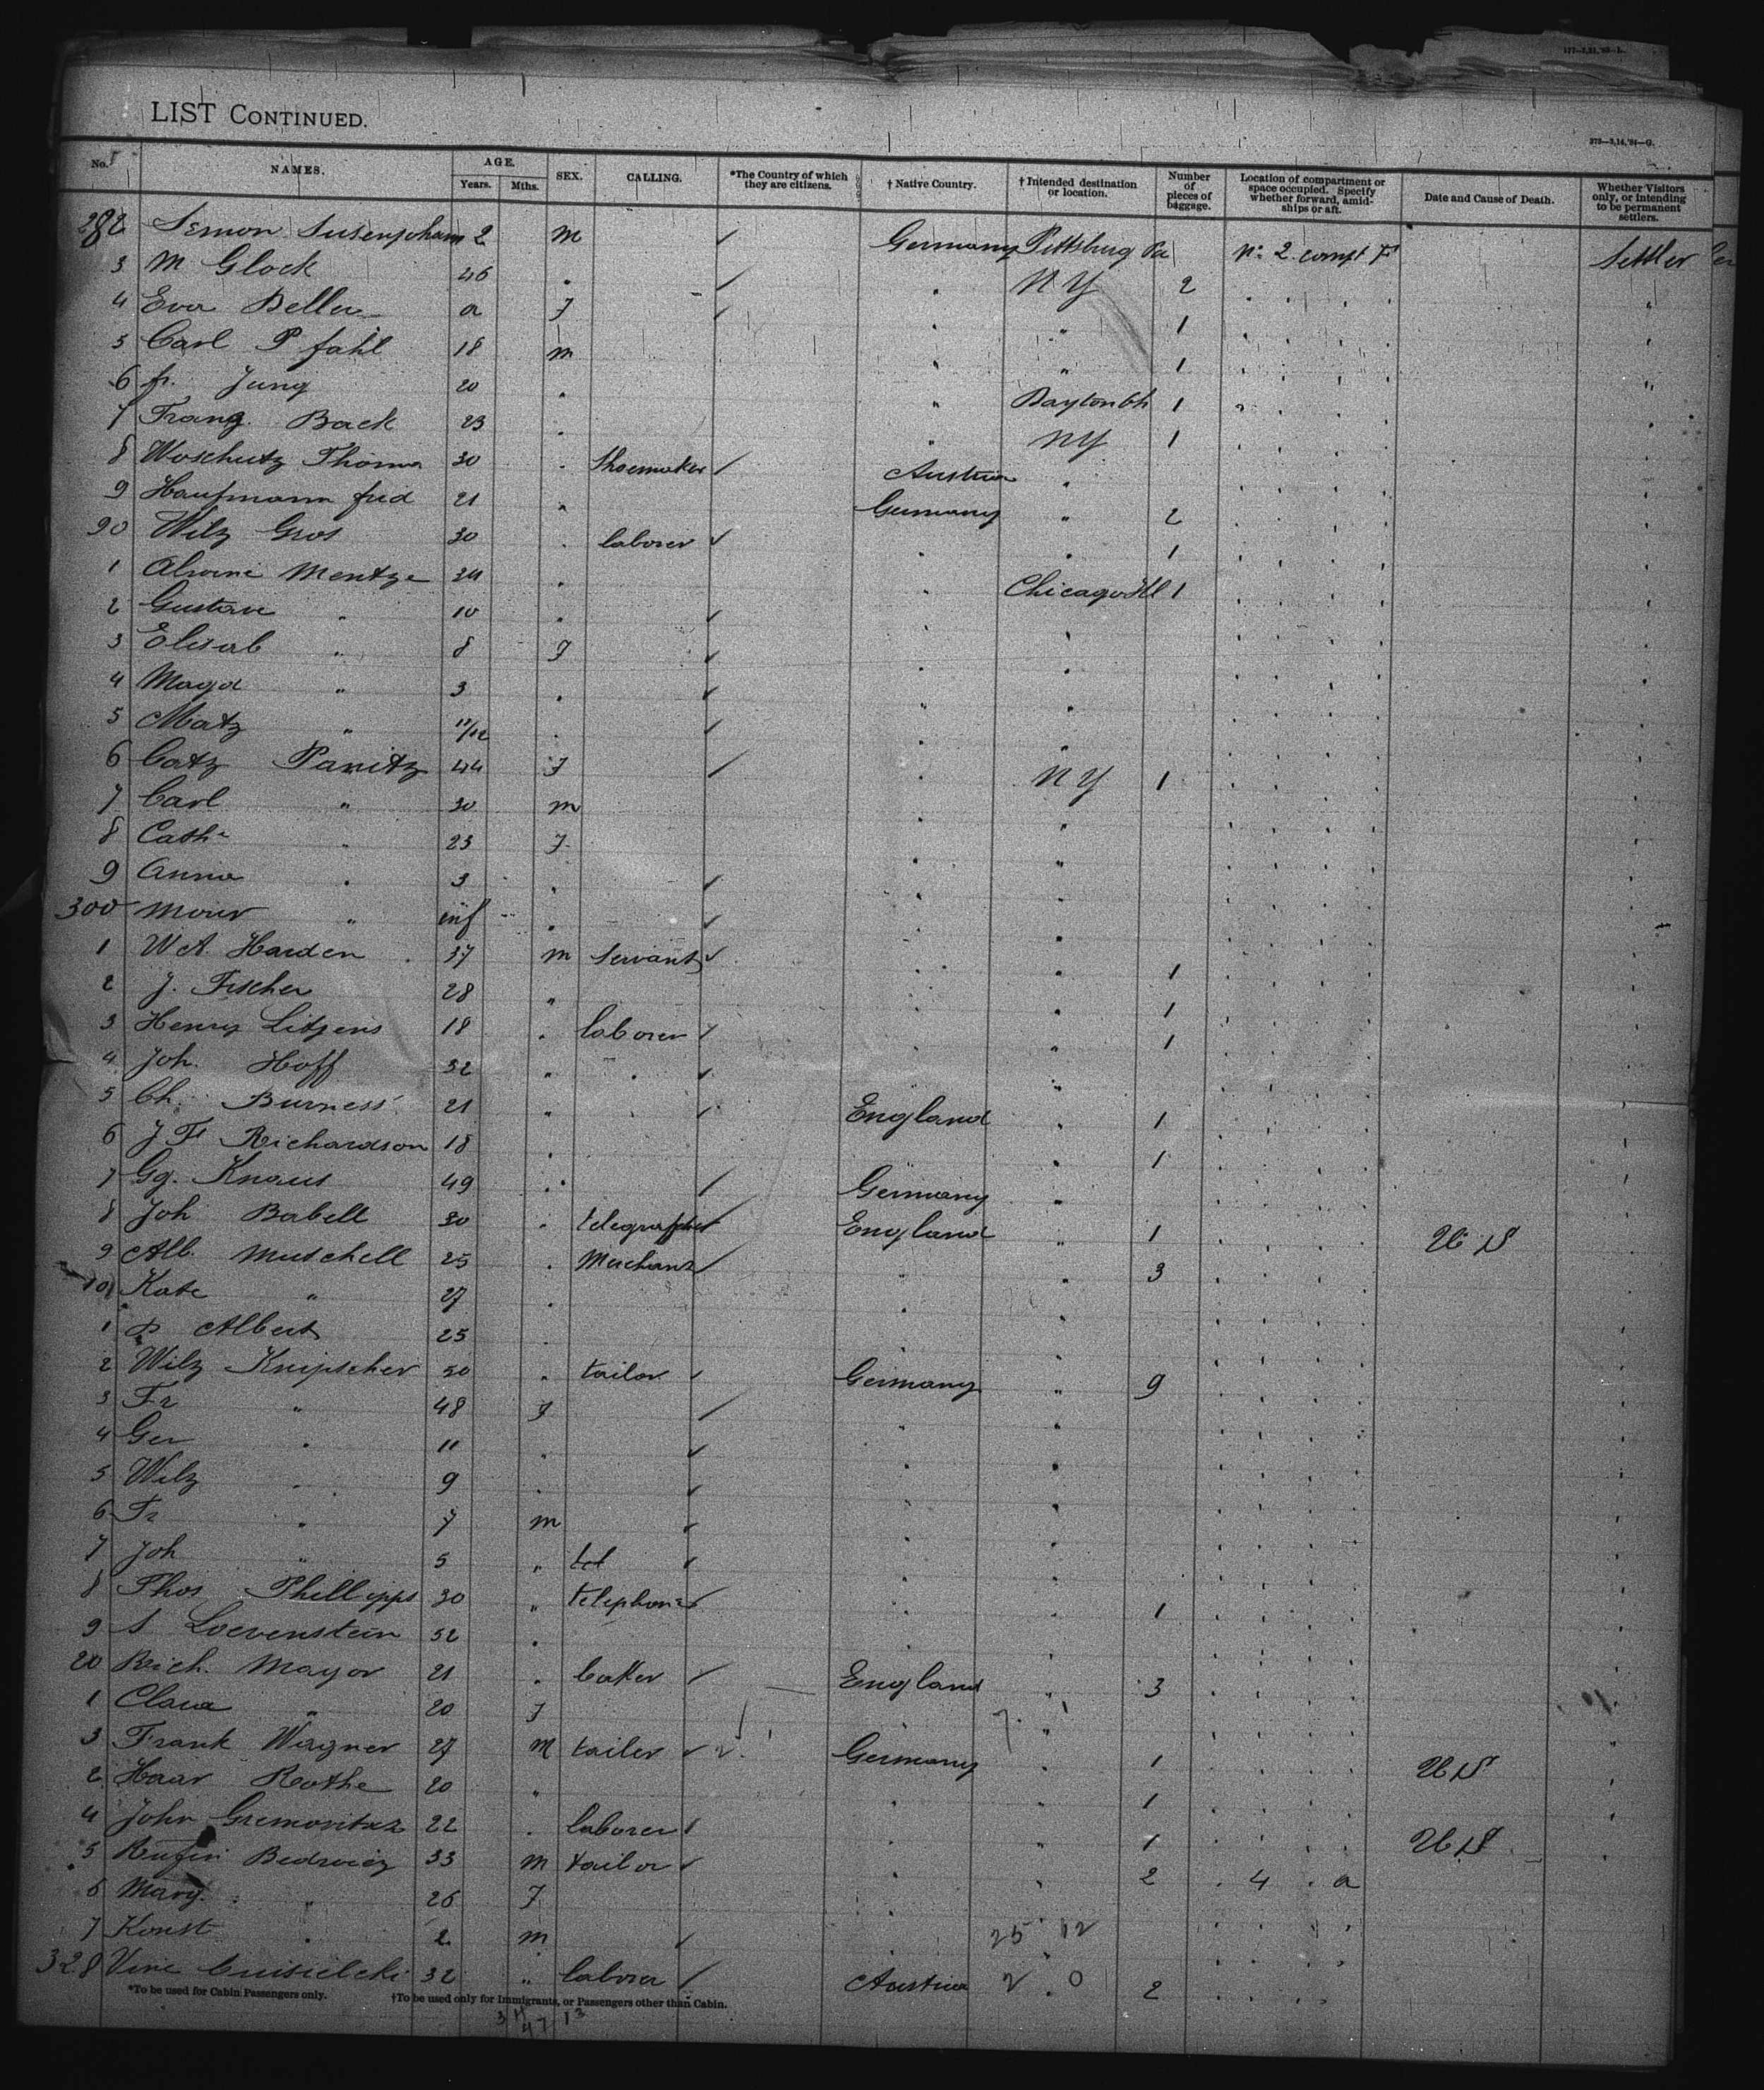 177—7,21,'93—L.
LIST CONTINUED.
373—3,14,'94—G.
No. NAMES. AGE. Years. Mths. SEX. CALLING. *The Country of which they are citizens. † Native Country. † Intended destination or location. Number of pieces of baggage. Location of compartment or space occupied. Specify whether forward, amidships or aft. Date and Cause of Death. Whether Visitors only, or intending to be permanent settlers.
282 2 m ✓ Germany Pittsburg Pa No 2 compt F Settler
3 M Glock 46 " ✓ " NY 2
4 Eva f ✓ " " 1
5 Carl Pfahl 18 m " " 1
6 Jung 20 " " Dayton Oh 1
7 Franz Back 23 " " NY 1
8 Woschutz Thoma 30 " Shoemaker ✓ Austria "
9 Haufmann frid 21 " Germany " 2
90 Wilz Gros 30 " laborer ✓ " " 1
1 Mentze 34 " " Chicago Ill 1
2 Gustave " 10 " ✓ " "
3 Elisab " 8 f ✓ " "
4 Magd " 3 " ✓ " "
5 Matz " 11/12 " ✓ " "
6 Catz Panitz 44 f ✓ " NY 1
7 Carl " 30 m " "
8 Cath " 23 f " "
9 Anna " 3 " ✓ " "
300 " inf " ✓ " "
1 W A. Harden 37 m Servant ✓ " " 1
2 J. Fischer 28 " " " 1
3 Henry Litjens 18 " laborer ✓ " " 1
4 Joh. Hoff 32 " " ✓ " "
5 Ch. Burness 21 " ✓ England " 1
6 J F Richardson 18 " " " 1
7 Gg. Knaus 49 " ✓ Germany "
8 Joh Babell 30 " telegrapher ✓ England " 1 U S
9 Alb. Mutchell 25 " Merchant ✓ " " 3
10 Kate " 27 " " "
1 P Albert 25 " " "
2 Wilz Knipscher 50 " tailor ✓ Germany " 9
3 Fr " 48 f ✓ " "
4 Ger " 11 " ✓ " "
5 Wilz " 9 " ✓ " "
6 Fr " 7 m ✓ " "
7 Joh " 5 " ✓ " "
8 Thos Phillipps 30 " telephone ✓ " " 1
9 S Loevenstein 52 " " "
20 Rich. Mayor 21 " baker ✓ England " 3
1 Clara " 20 f " "
3 Frank Wagner 27 M tailer ✓ Germany " 1 U S
2 Haar Rothe 20 " " " 1
4 John 22 " laborer ✓ " " 1 U S
5 33 m tailor ✓ " " 2 " 4 " a
6 Mary " 26 f "
7 Konst " 2 m ✓ " 25 12
328 32 " laborer ✓ Austria 2 0 2
*To be used for Cabin Passengers only. †To be used only for Immigrants, or Passengers other than Cabin.
47 13